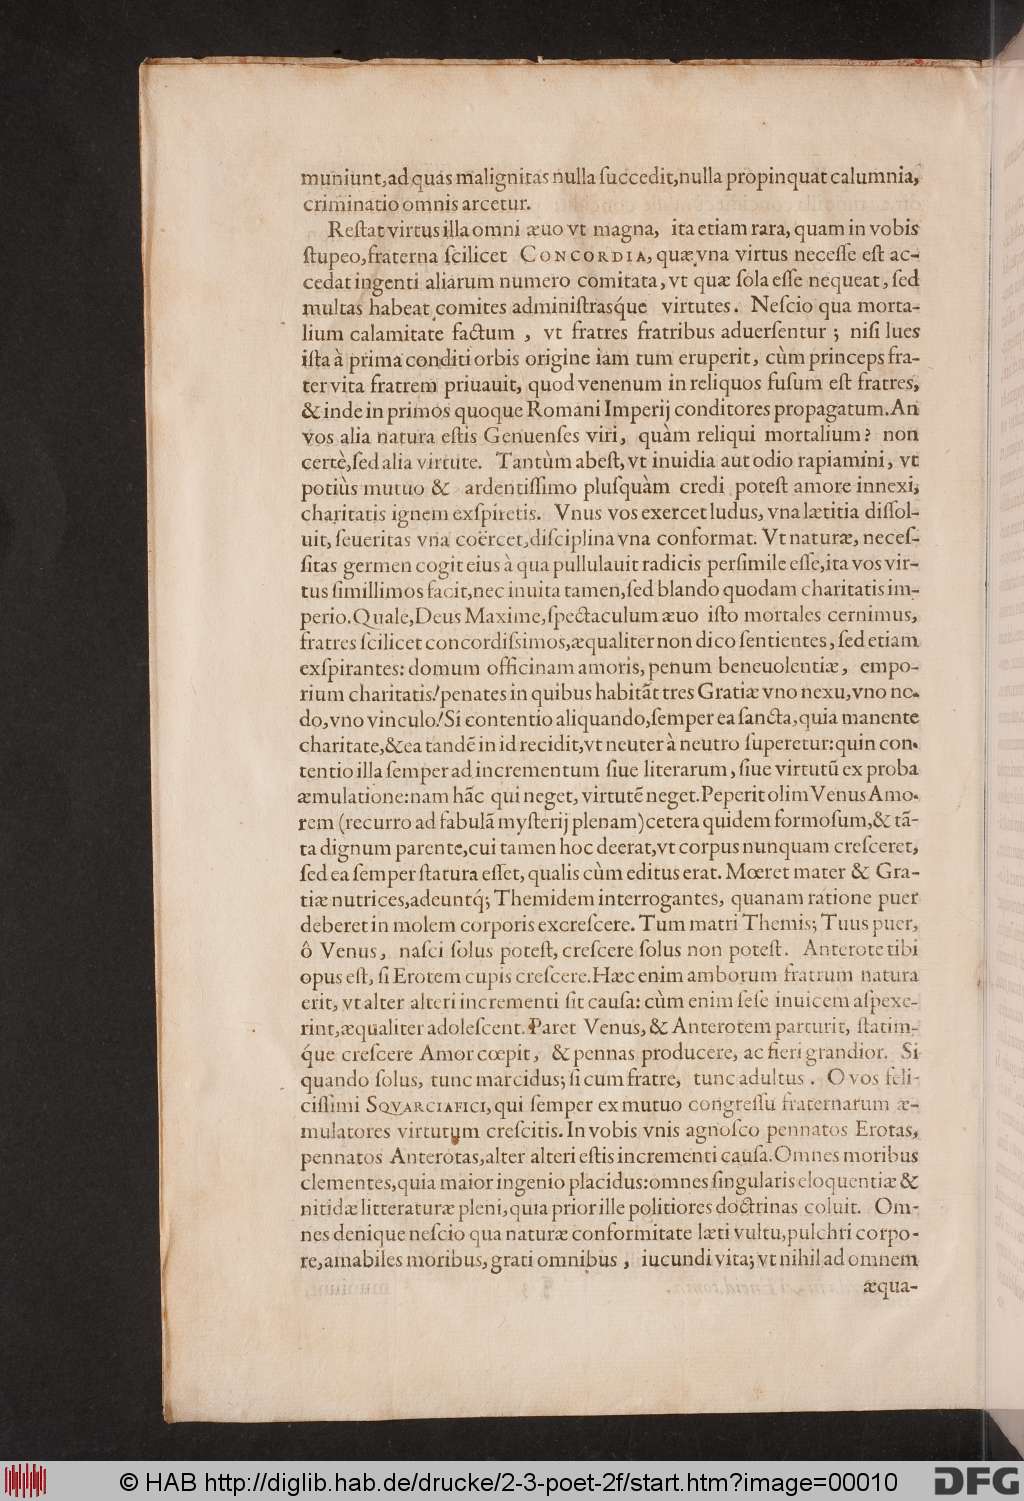 muniunt, ad quas malignitas nulla ſuccedit, nulla propinquat calumnia,
criminatio omnis arcetur.
Reſtat virtus illa omni æuo vt magna, ita etiam rara, quam in vobis
ſtupeo, fraterna ſcilicet CONCORDIA, quæ vna virtus neceſſe eſt ac-
cedat ingenti aliarum numero comitata, vt quæ ſola eſſe nequeat, ſed
multas habeat comites adminiſtrasq́ue virtutes. Neſcio qua morta-
lium calamitate factum, vt fratres fratribus aduerſentur; niſi lues
iſta à prima conditi orbis origine iam tum eruperit, cùm princeps fra-
ter vita fratrem priuauit, quod venenum in reliquos fuſum eſt fratres,
& inde in primos quoque Romani Imperij conditores propagatum. An
vos alia natura eſtis Genuenſes viri, quàm reliqui mortalium? non
certè, ſed alia virtute. Tantùm abeſt, vt inuidia aut odio rapiamini, vt
potiùs mutuo & ardentiſſimo pluſquàm credi poteſt amore innexi,
charitatis ignem exſpiretis. Vnus vos exercet ludus, vna lætitia diſſol-
uit, ſeueritas vna coërcet, diſciplina vna conformat. Vt naturæ, neceſ-
ſitas germen cogit eius à qua pullulauit radicis perſimile eſſe, ita vos vir-
tus ſimillimos facit, nec inuita tamen, ſed blando quodam charitatis im-
perio. Quale, Deus Maxime, ſpectaculum æuo iſto mortales cernimus,
fratres ſcilicet concordiſsimos, æqualiter non dico ſentientes, ſed etiam
exſpirantes: domum officinam amoris, penum beneuolentiæ, empo-
rium charitatis! penates in quibus habitãt tres Gratiæ vno nexu, vno no-
do, vno vinculo! Si contentio aliquando, ſemper ea ſancta, quia manente
charitate, & ea tandẽ in id recidit, vt neuter à neutro ſuperetur: quin con-
tentio illa ſemper ad incrementum ſiue literarum, ſiue virtutũ ex proba
æmulatione: nam hãc qui neget, virtutẽ neget. Peperit olim Venus Amo-
rem (recurro ad fabulã myſterij plenam) cetera quidem formoſum, & tã-
ta dignum parente, cui tamen hoc deerat, vt corpus nunquam creſceret,
ſed ea ſemper ſtatura eſſet, qualis cùm editus erat. Mœret mater & Gra-
tiæ nutrices, adeuntq́; Themidem interrogantes, quanam ratione puer
deberet in molem corporis excreſcere. Tum matri Themis; Tuus puer,
ô Venus, naſci ſolus poteſt, creſcere ſolus non poteſt. Anterote tibi
opus eſt, ſi Erotem cupis creſcere. Hæc enim amborum fratrum natura
erit, vt alter alteri incrementi ſit cauſa: cùm enim ſeſe inuicem aſpexe-
rint, æqualiter adoleſcent. Paret Venus, & Anterotem parturit, ſtatim-
q́ue creſcere Amor cœpit, & pennas producere, ac fieri grandior. Si
quando ſolus, tunc marcidus; ſi cum fratre, tunc adultus. O vos feli-
ciſſimi SQVARCIAFICI, qui ſemper ex mutuo congreſſu fraternarum æ-
mulatores virtutum creſcitis. In vobis vnis agnoſco pennatos Erotas,
pennatos Anterotas, alter alteri eſtis incrementi cauſa. Omnes moribus
clementes, quia maior ingenio placidus: omnes ſingularis eloquentiæ &
nitidæ litteraturæ pleni, quia prior ille politiores doctrinas coluit. Om-
nes denique neſcio qua naturæ conformitate læti vultu, pulchri corpo-
re, amabiles moribus, grati omnibus, iucundi vita; vt nihil ad omnem
æqua-
© HAB http://diglib.hab.de/drucke/2-3-poet-2f/start.htm?image=00010
DFG